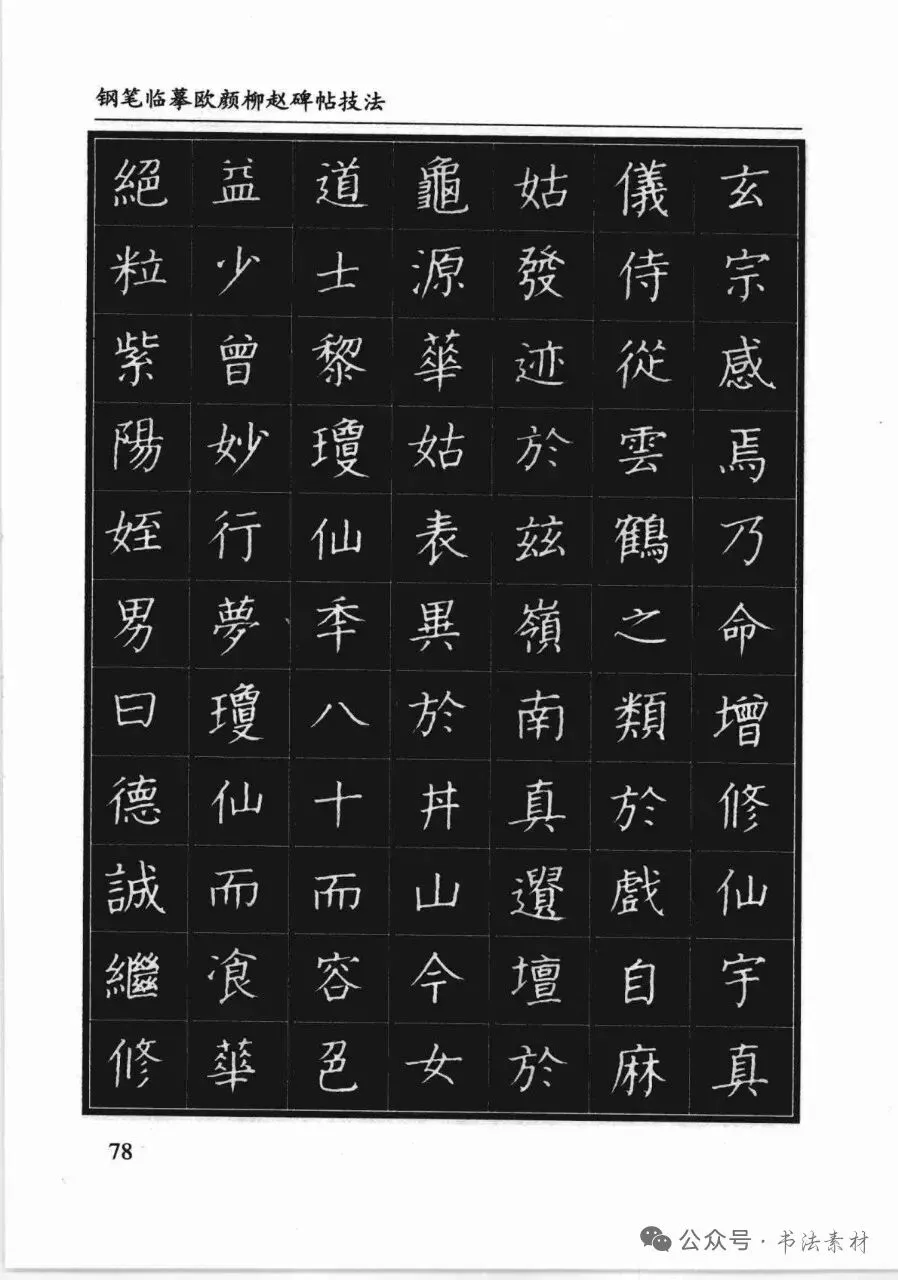 钢笔临摹欧颜柳赵碑帖技法
玄宗感焉乃命增修仙宇真
儀侍從雲鶴之類於戲自麻
姑發迹於兹嶺南真遺壇於
龜源華姑表異於丼山今女
道士黎瓊仙年八十而容色
益少曾妙行夢瓊仙而飡華
絕粒紫陽姪男曰德誠繼修
78
公众号·书法素材